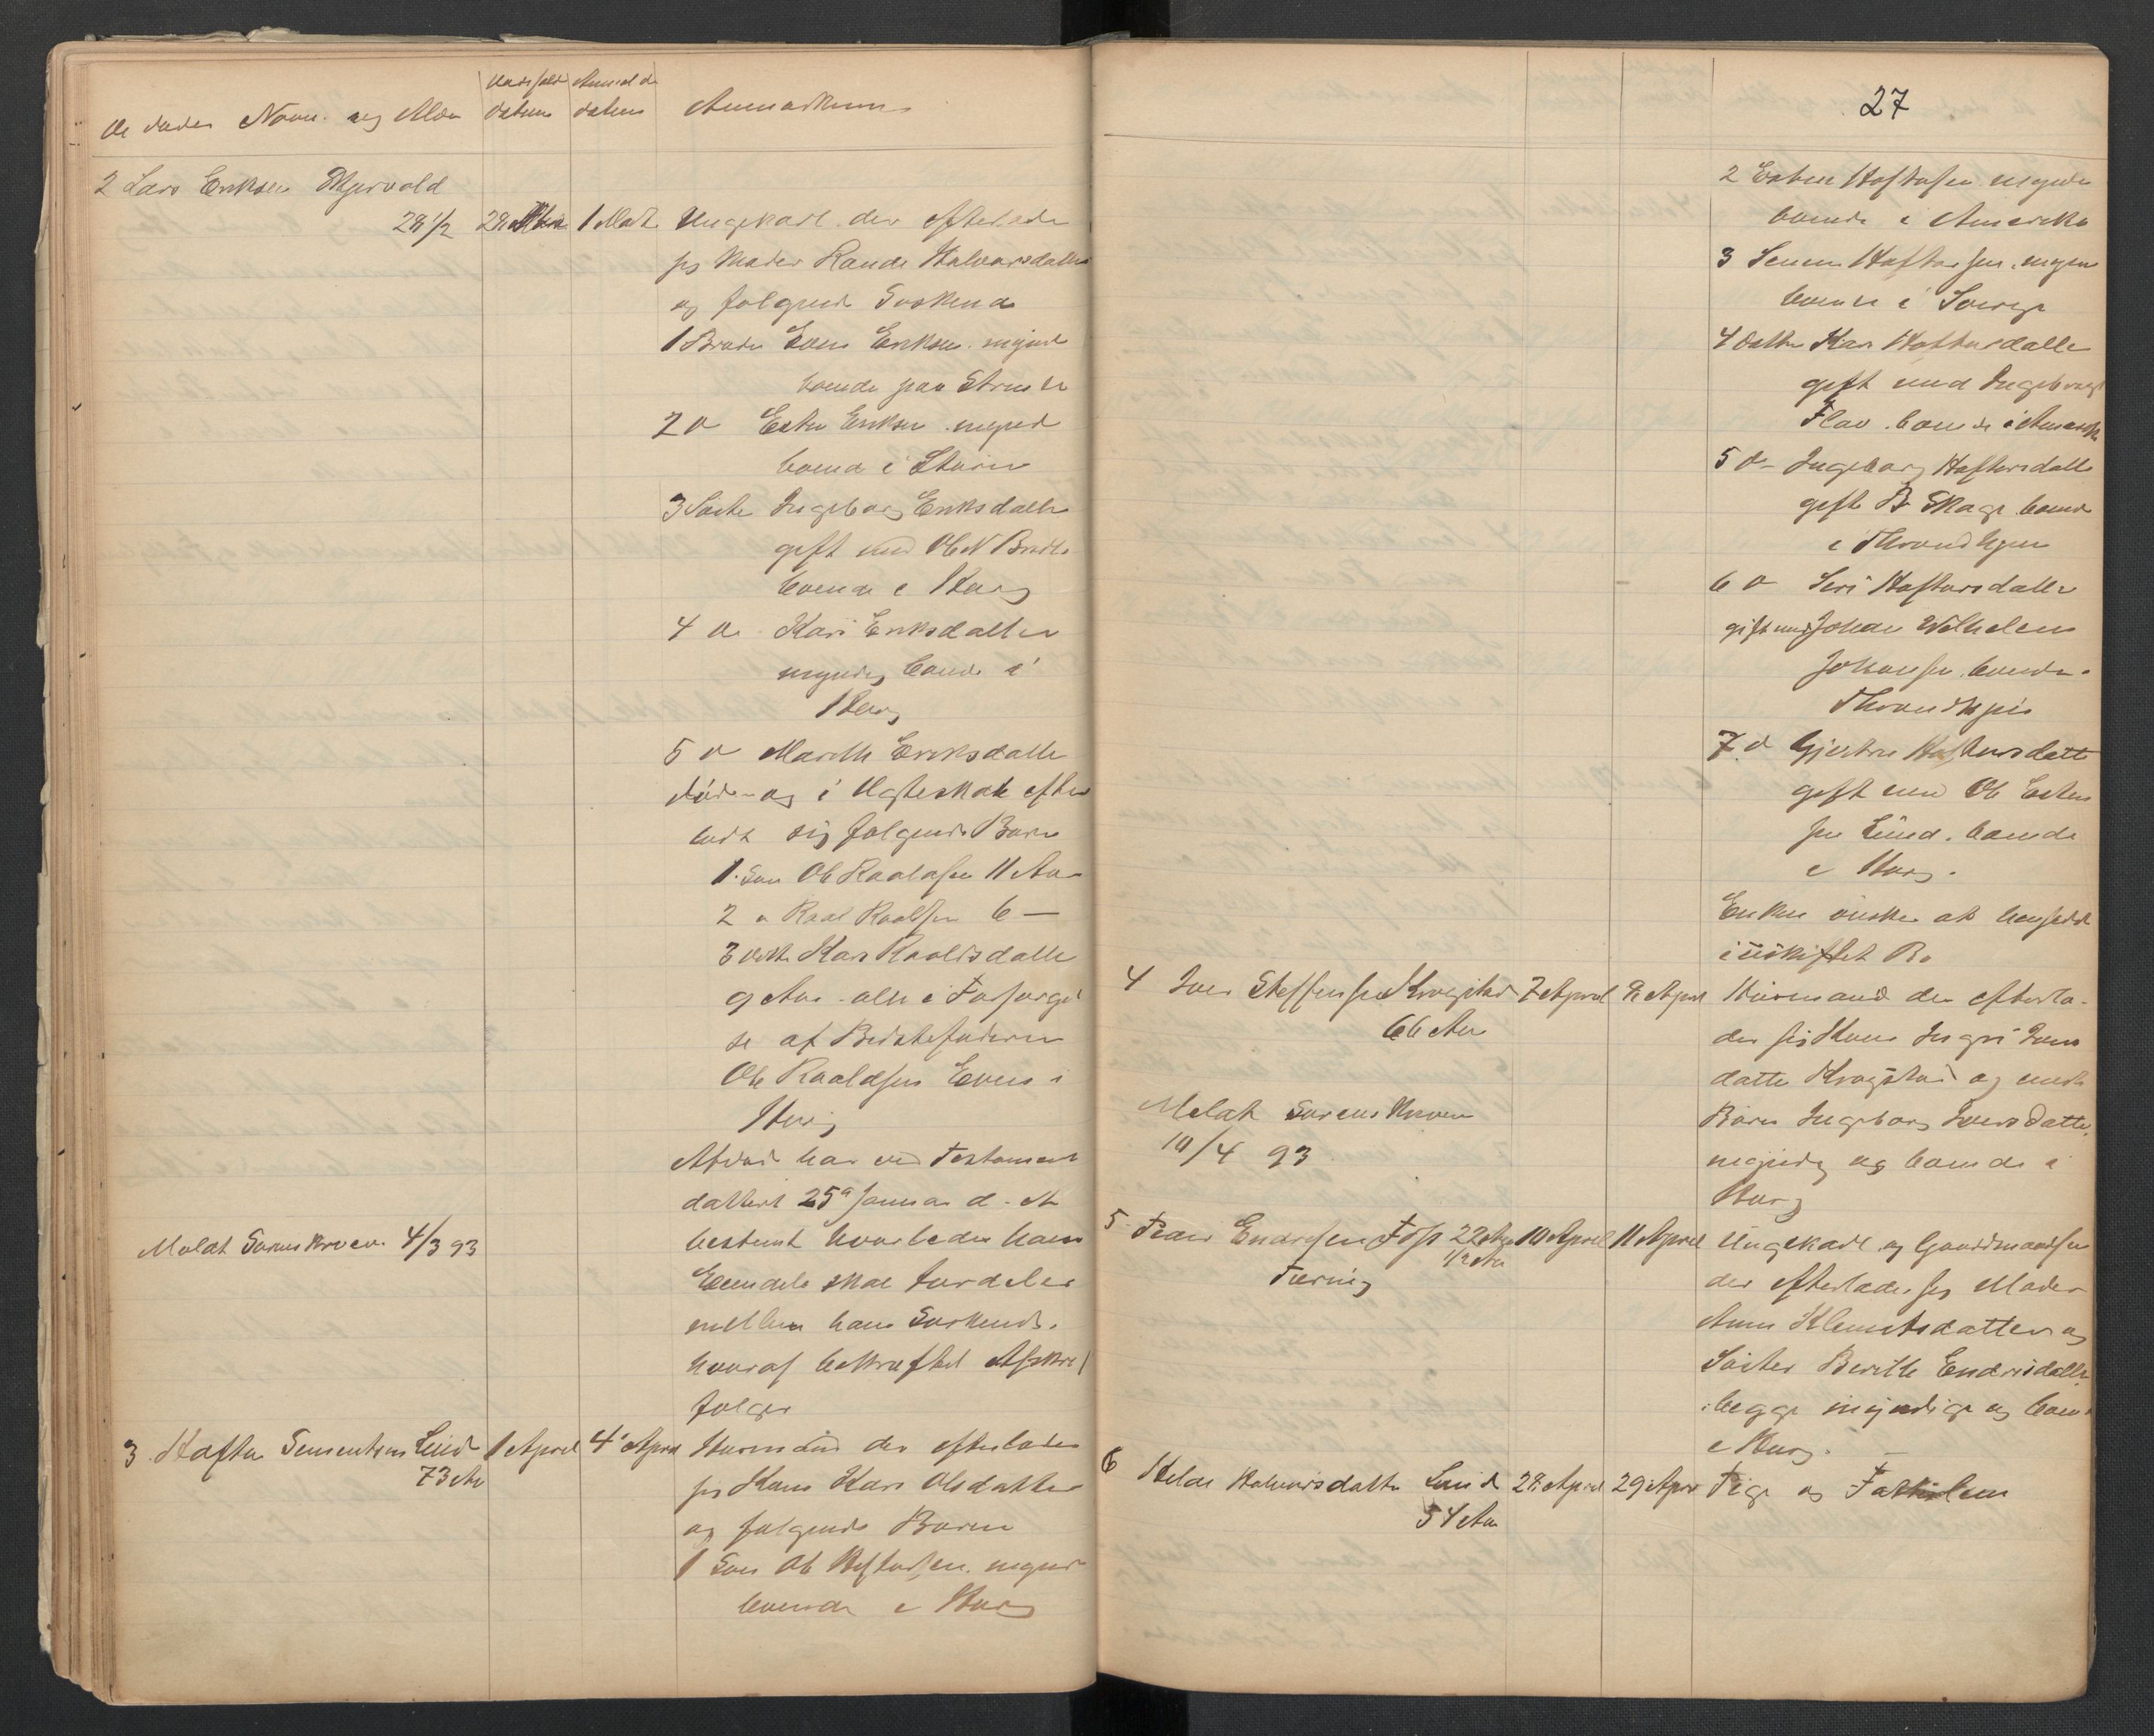 De dødes Navn og Alder
Dødsfald datum
Anmeldt datum
Anmærkning
2 Lars Eriksen Skjervold
28 1/2
1 Mart
Ungekarl der efterlader
sig Moder Rande Halvorsdatter
og følgende Søskende
1 Broder Even Eriksen myndi
boende paa Strinde
2 d Esten Eriksen mynd
boend i Støren
3 Søster Ingeborg Eriksdatter
gift med Ole N
boende i Horg
4 d. Kari Eriksdatter
myndig boende i
Horg
5 d Marith Eriksdatter
død og i Ægteskab efter
ladt sig følgende Børn
1. Søn Ole Roaldsen 11 Aar
2 d Roal Roaldsen 6 —
3 Datter Kari Roaldsdatter
9 Aar alle i Forsørgel
se af Bedstefaderen
Ole Roaldsen Even i
Horg
Afdøde har ved Testament
dattert 25de Januar d. A
bestemt hvorledes hans
Eiendele skal fordeles
mellem hans Søskende.
hvoraf bekræftet Afskrif
følger
Meldt Sorenskriveren 4/3 93
3 Haftor Sementsen Lund
73 Aar
1 April
4 April
Huusmand der efterlader
sig Kone Kari Olsdatter
og følgende Børn
1 Søn Ole Haftorsen mynd
boende i Horg
27
2 Esten Haftorsen myndi
boende i Amerika
3 Semen Haftorsen myn
boende i Sverge
4 Datter Kari Haftorsdatter
gift med Ingebregt
Flaa boende i Amerik
5 d – Ingeborg Haftorsdatter
gift B Skage boend
i Throndhjem
6 d Seri Haftorsdatter
gift med Johan Wilhelm
Johansen boende i
Throndhjem
7 d Gjertru Haftorsdatt
gift med Ole Esten
sen Lund. boende
i Horg.
Enken ønsker at hensidde
i uskiftet Bo
4 Iver Steffensen Krogstad
66 Aar
7 April
8 April
Huusmand der efterla-
der sig Kone Ingri Jons
datter Krogstad og eneste
Barn Ingeborg Iversdatter
myndig og boende i
Horg
Meldt Sorenskriveren
10/4 93
5 Peder Endresen Foss 22
1/2 Aar
Tæring
10 April
11 April
Ungekarl og Gaardmandsøn
der efterlader sig Moder
Anne Klemetsdatter og
Søster Berith Endresdatter
begge myndige og boen
i Horg.
6 Halvorsdatter Lund
54 Aar
28 April
29 April
Pige og Fattiglem